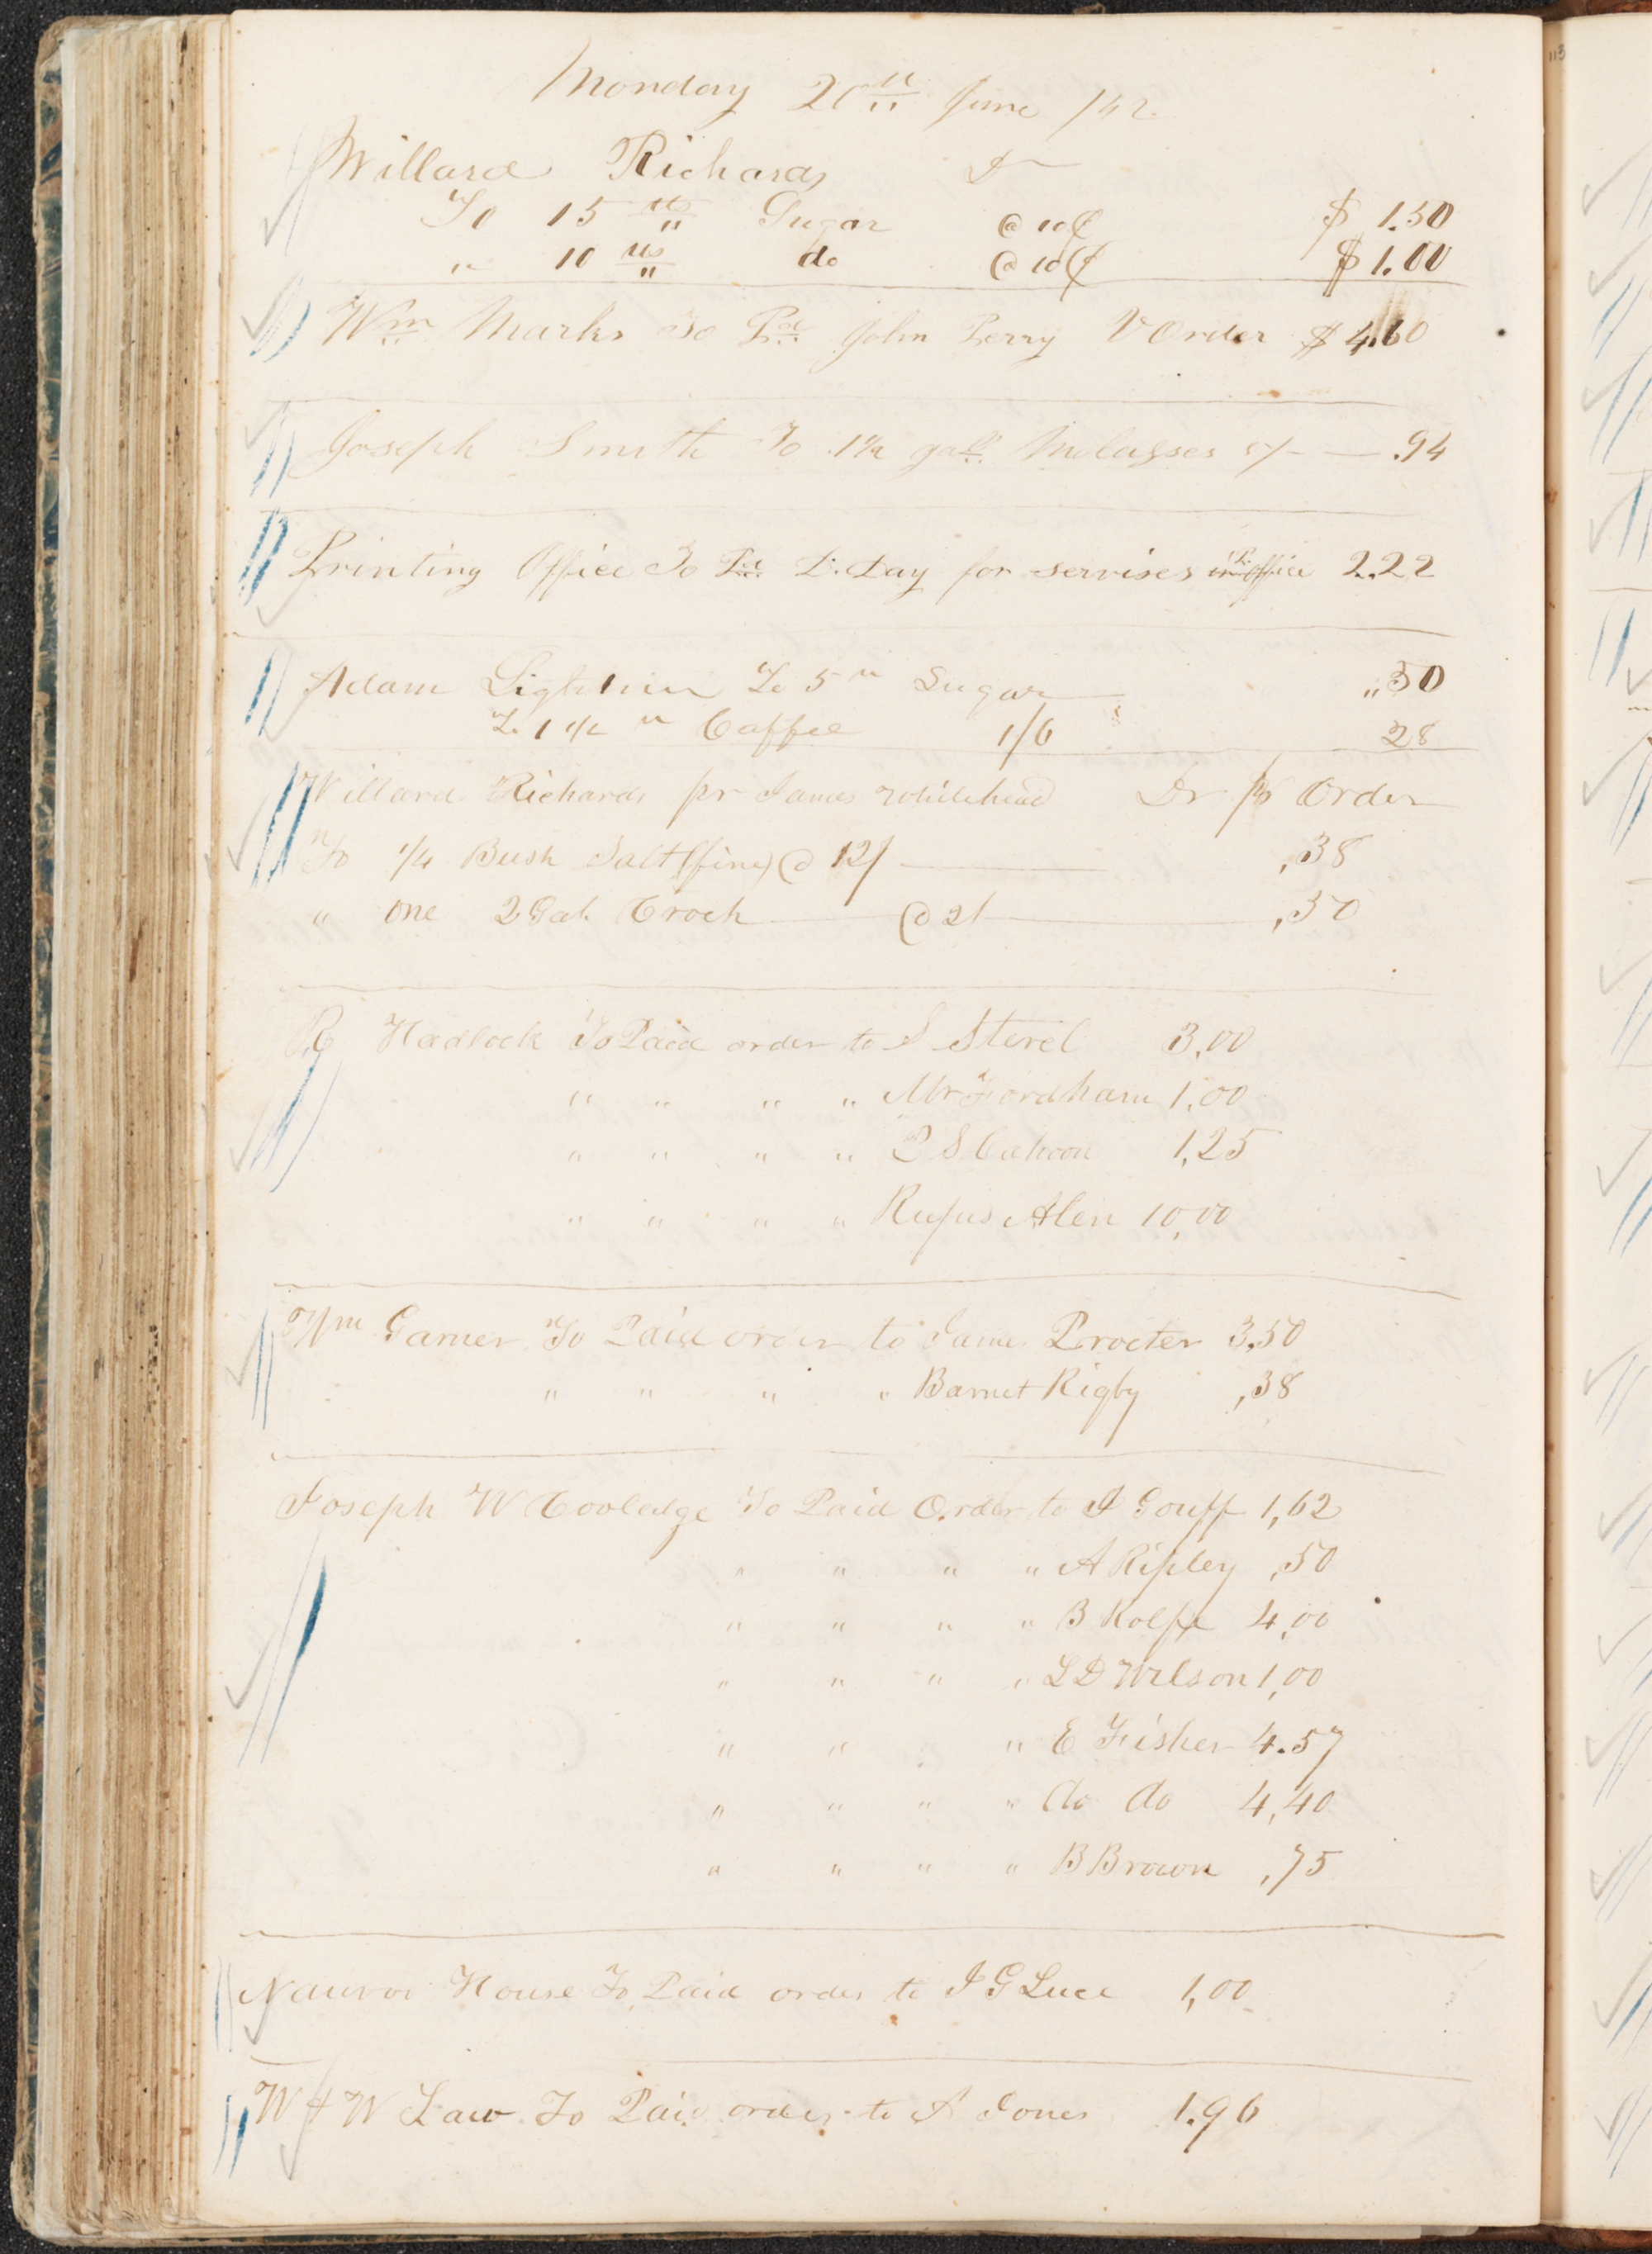 Monday 20th June /42.
Willard Richards Dr
To 15 lbs Sugar @ 10¢ $ 1.50
" 10 lbs do @ 10¢ $ 1.00
Wm Marks To Pd John Perry V Order $ 4.60
Joseph Smith To 1½ galls Molasses 5/- — .94
Printing Office To Pd L. Day for servises in P. office 2.22
Adam Lightner To 5 " Sugar ,,50
To 1 1/2 " Caffee 1/6 28
Willard Richards pr James Whitehead Dr pr Order
To 1/4 Bush Salt (fine) @ 12/ ,38
" one 2 Gal. Crock @ 2/ ,50
R Hadlock To Paid order to S Sterel 3,00
" " " " Mr Fordham 1,00
" " " " P S Cahoon 1,25
" " " " Rufus Alen 10,00
Wm Garner To Paid order to Jame Procter 3,50
" " " " Barnet Rigby ,38
Joseph W Cooledge To Paid Order to J Gouff 1,62
" " " " A Ripley ,50
" " " " B Rolfe 4,00
" " " " L D Wilson 1,00
" " " E Fisher 4.57
" " " " do do 4,40
" " " " B Brown ,75
Nauvoo House To Paid order to J G Luce 1,00
W & W Law To Paid order to J Jones 1.96
113